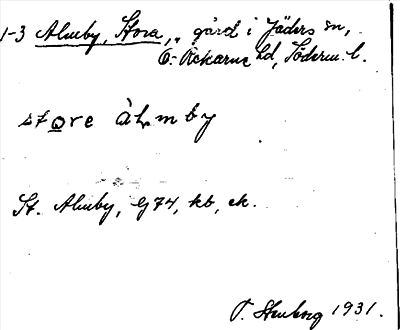 1-3 Almby, Stora, gård i Jäders sn,
Ö. Rekarne hd, Söderm. l.
store àlmby
St. Almby, G 74, kb, ek.
1931.